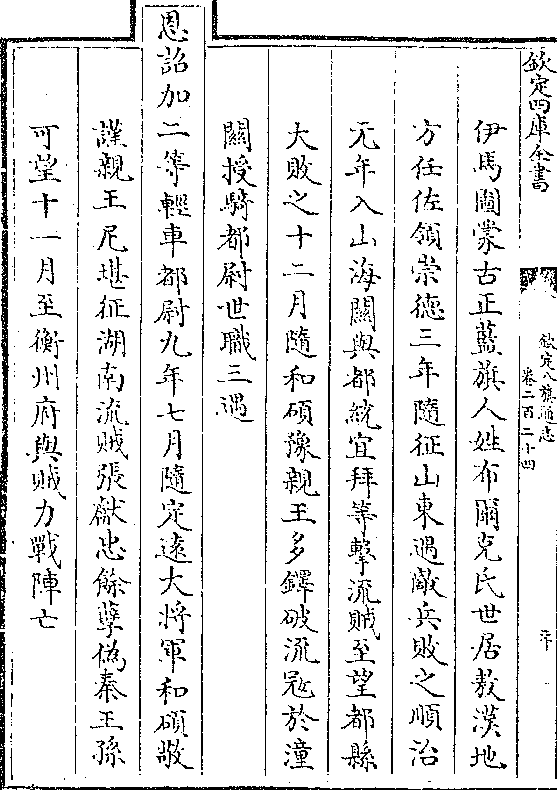 欽定四庫全書
欽定八旗通志
卷二百二十四
伊馬圖蒙古正藍旗人姓布爾克氏世居敖漢地
方任佐領崇德三年隨征山東遇敵兵敗之順治
元年入山海關與都統宜拜等擊流賊至望都縣
大敗之十二月隨和碩豫親王多鐸破流寇於潼
關授騎都尉世職三遇
恩詔加二等輕車都尉九年七月隨定遠大將軍和碩敬
謹親王尼堪征湖南流賊張獻忠餘孽偽秦王孫
可望十一月至衡州府與賊力戰陣亡